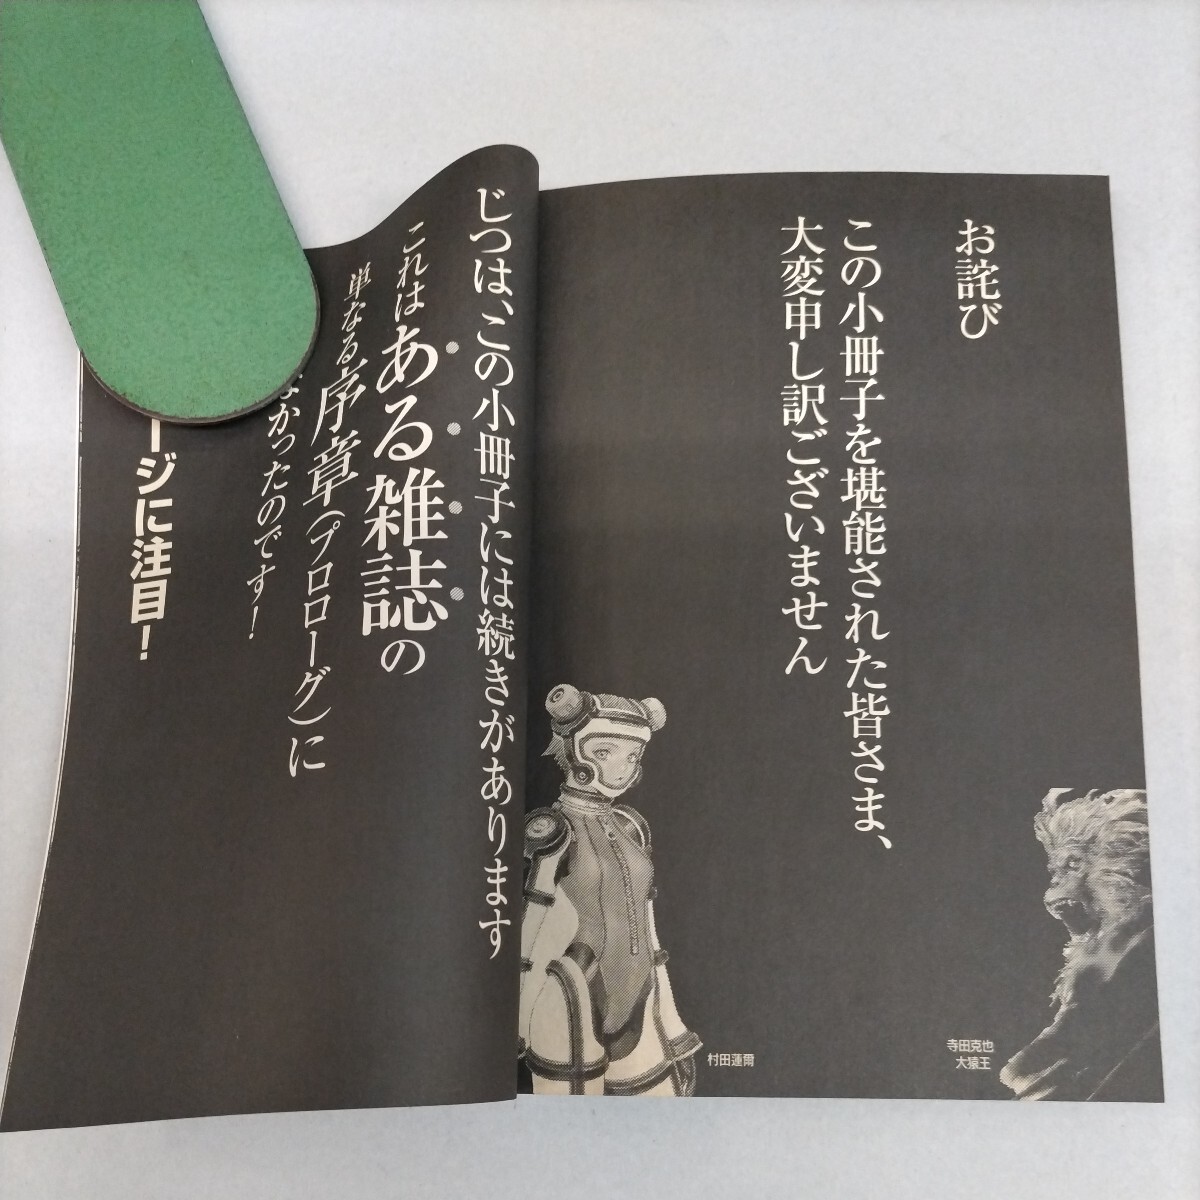 お詫び
この小冊子を堪能された皆さま、
大変申し訳ございません
寺田克也
大猿王
村田蓮爾
じつは、この小冊子には続きがあります
これはある雑誌の
単なる序章(プロローグ)に
かったのです!
ージに注目!